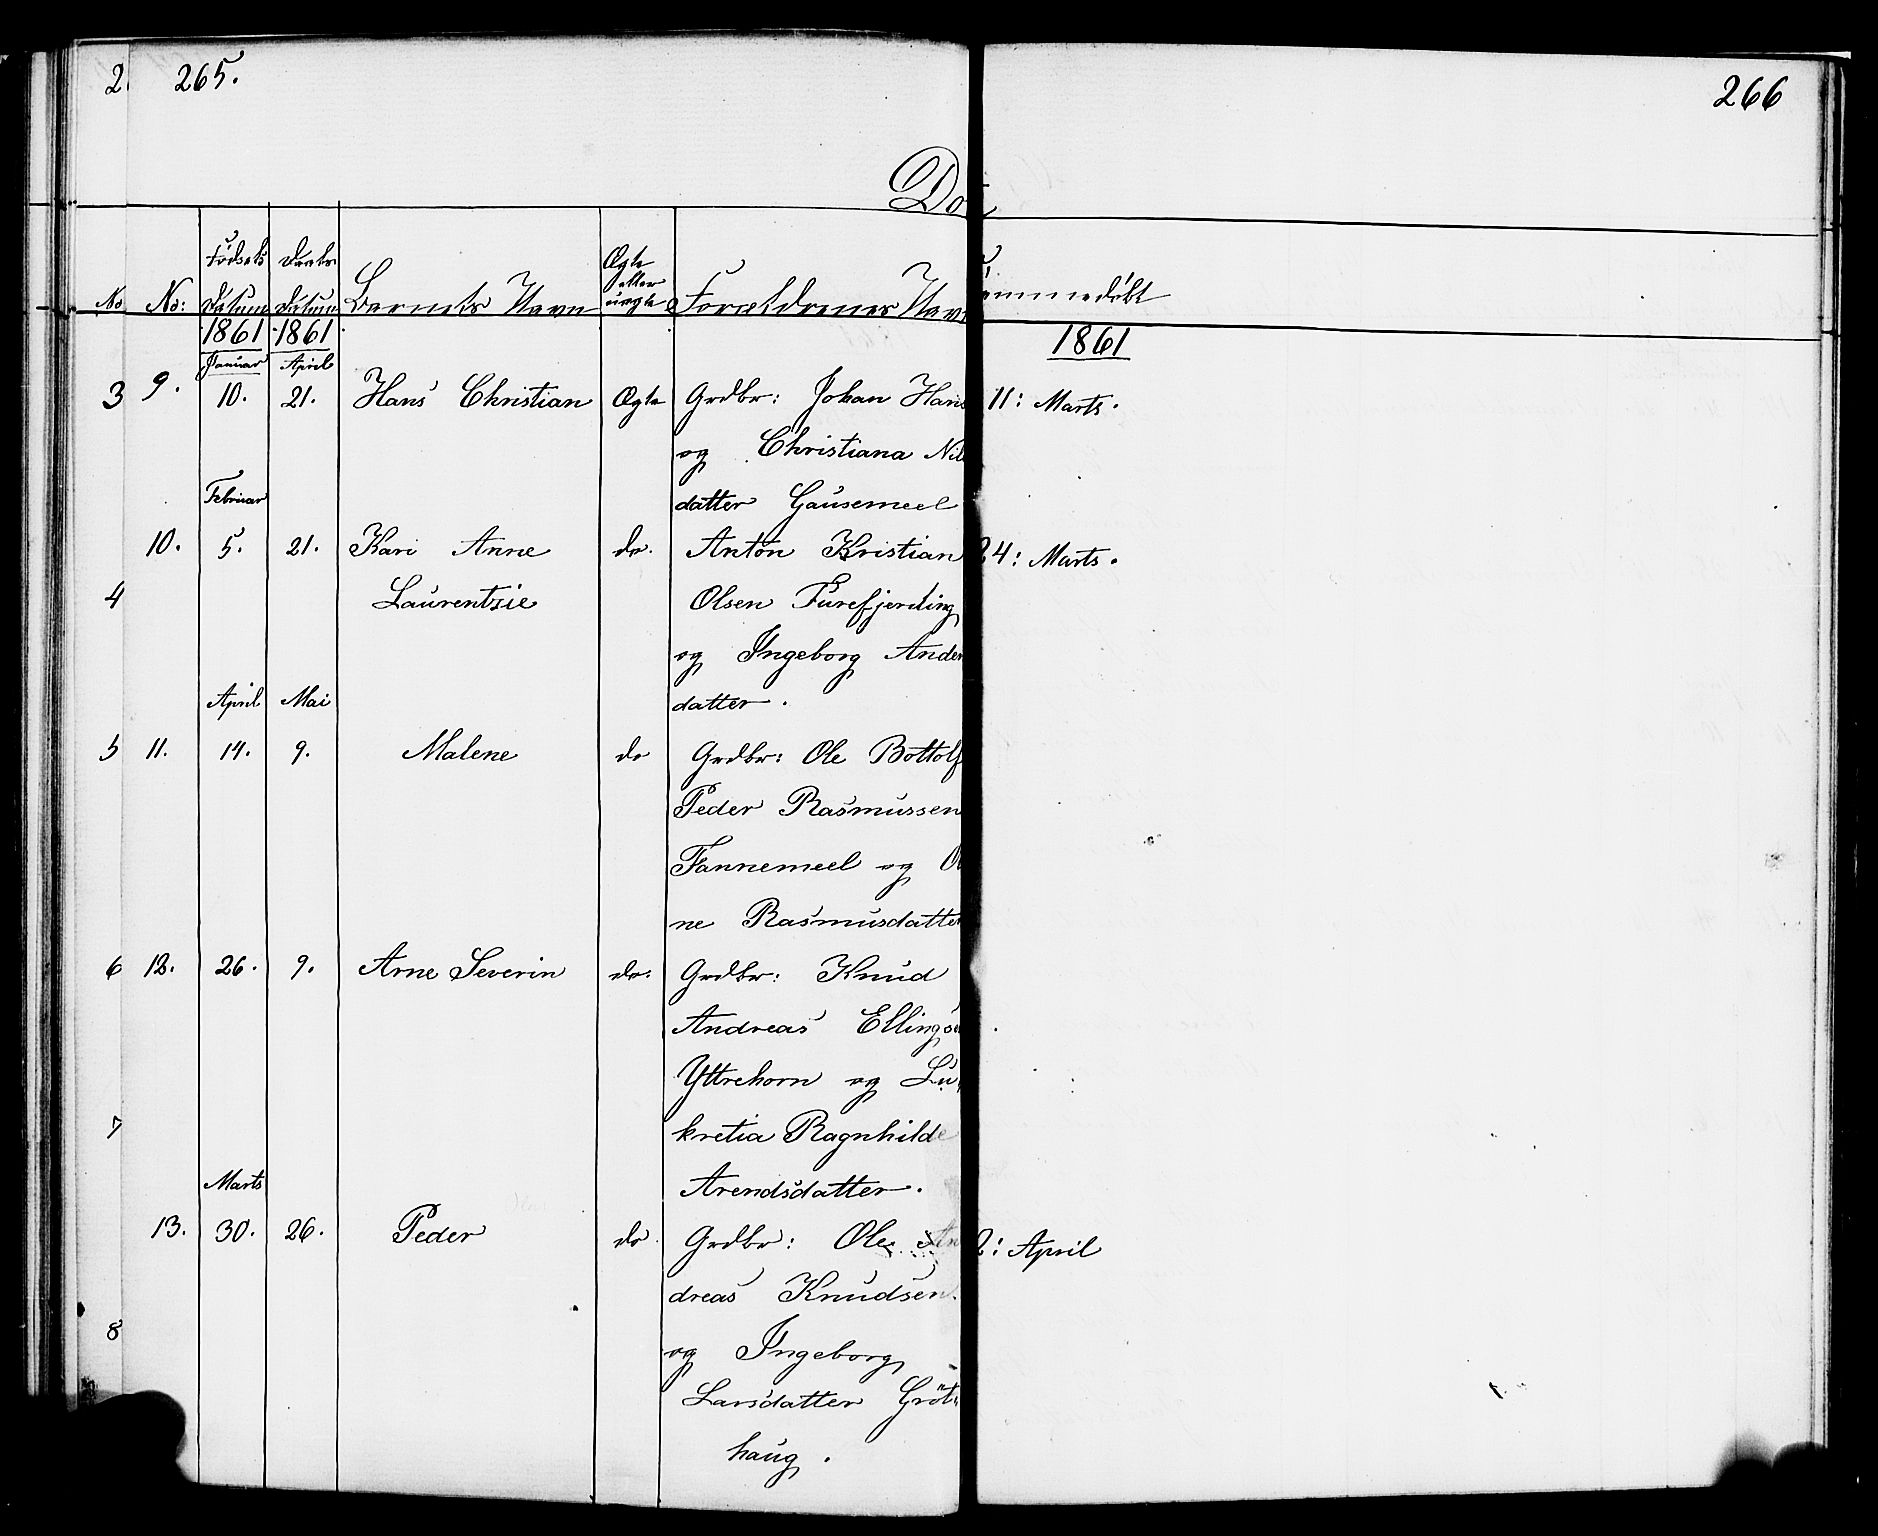 2 265.
266
Dø
No No: Fødsels Datum Daabs Datum Barnets Navn Ægte eller uægte Forældrenes Nav
emmedøbt
1861 1861
1861
Januar April
3 9. 10. 21. Hans Christian Ægte Grdbr: Johan Hans 11: Marts.
og Christiana Nil
Februar datter Gausemeel
10. 5. 21. Kari Anne do. Anton Kristian 24: Marts.
4 Laurentzie Olsen Furefjerding
og Ingeborg Ander
April Mai datter.
5 11. 14. 9. Malene do Grdbr: Ole Bottolf
Peder Rasmussen
Fannemeel og O
ne Rasmusdatter
6 12. 26. 9. Arne Severin do. Grdbr: Knud
Andreas Ellingse
Yttrehorn og Lu
7 kretia Ragnhilde
Marts Arendsdatter.
13. 30. 26. Peder do. Grdbr: Ole An 2: April
dreas Knudsen
8 og Ingeborg
Larsdatter Gröt
haug.